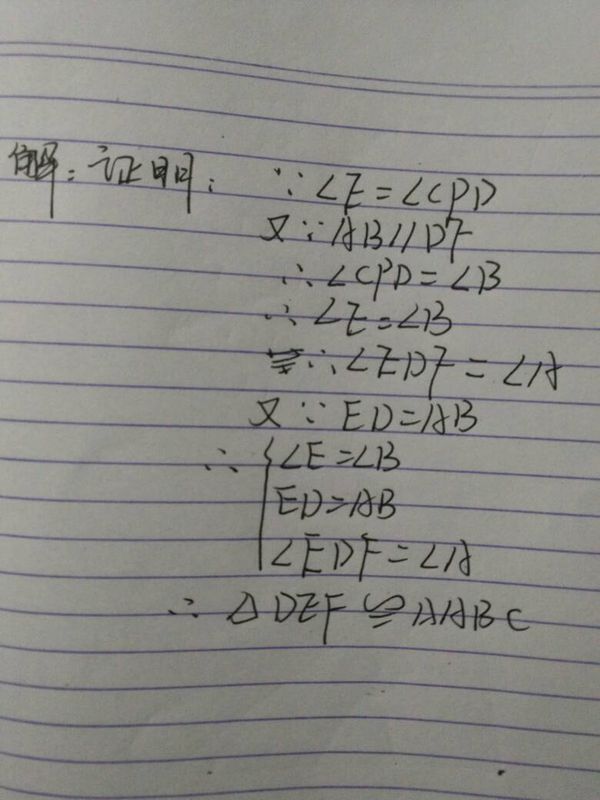 解：证明：∵∠E=∠CPD
又∵AB//DF
∴∠CPD=∠B
∴∠E=∠B
∴∠EDF=∠A
又∵ED=AB
∴{∠E=∠B
ED=AB
∠EDF=∠A
∴△DEF≌△ABC